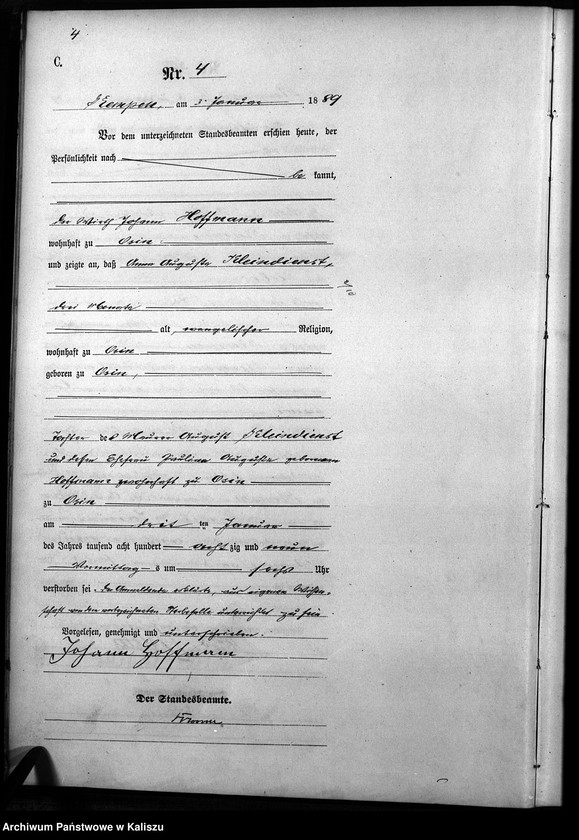 4
C.
Nr. 4
Kempen, am 3. Januar 1889
Vor dem unterzeichneten Standesbeamten erschien heute, der
Persönlichkeit nach
be kannt,
der Wirth Johann Hoffmann
wohnhaft zu Osin
und zeigte an, daß Anna Auguste Kleindienst,
drei Monate
alt, evangelischer Religion,
wohnhaft zu Osin
geboren zu Osin,
Tochter des Maurer August Kleindienst
und dessen Ehefrau Pauline Auguste geborenen
Hoffmann wohnhaft zu Osin
zu Osin
am drit ten Januar
des Jahres tausend acht hundert achtzig und neun
Vormittags um sechs Uhr
verstorben sei. Der Anmeldende erklärte, aus eigener Wissen-
schaft von dem vorbezeichneten Sterbefalle unterrichtet zu sein.
Vorgelesen, genehmigt und unterschrieben.
Johann Hoffmann
Der Standesbeamte.
Archiwum Państwowe w Kaliszu